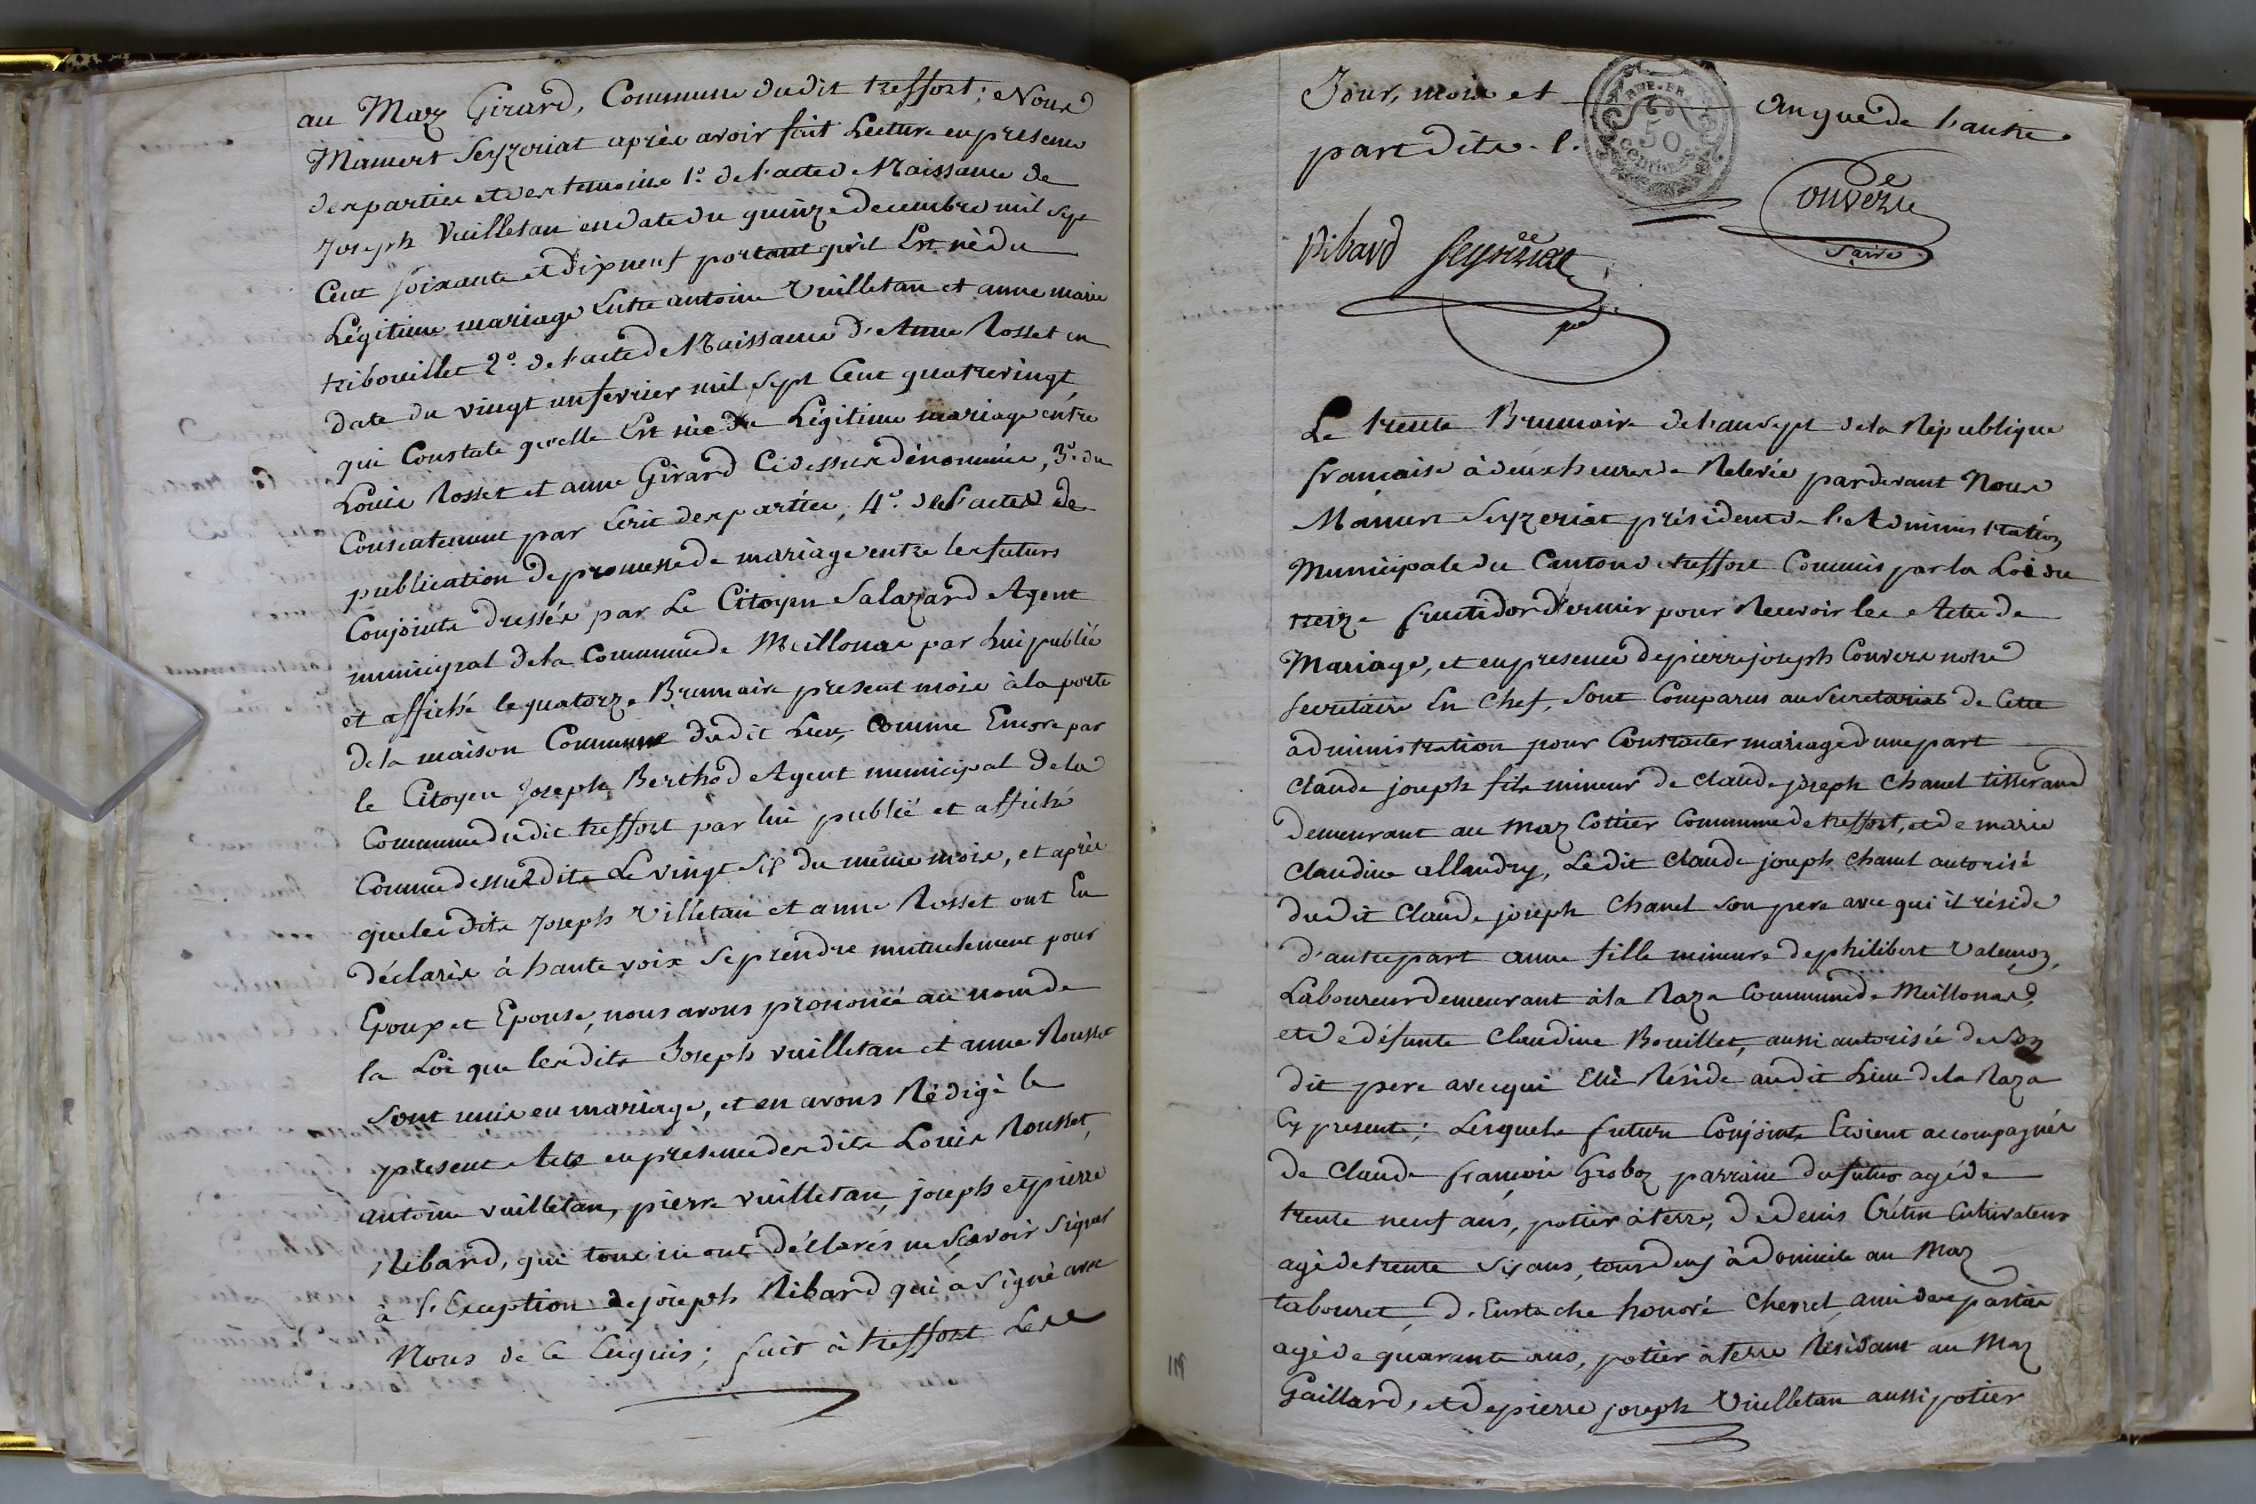 au Maz Girard, Commune dudit treffort; Nous
Mamert Seyzeriat après avoir fait Lecture en presence
des parties et des temoins 1º. de l'acte de Naissance de
Joseph Vuilletan en date du quinze decembre mil sept
Cent soixante et dix neuf portant qu'il Est né du
Légitime mariage Entre antoine Vuilletan et anne marie
tribouillet 2º. de l'acte de Naissance d'Anne Rosset en
date du vingt un fevrier mil sept Cent quatrevingt
qui Constate qu'elle Est née du Légitime mariage entre
Louis Rosset et anne Girard Ci dessus dénommés, 3º. du
Consentement par Ecrit des parties, 4º. de l'acte de
publication de promesse de mariage entre les futurs
Conjoints dressés par Le Citoyen Salazard Agent
municipal de la Commune de Meillonas par Lui publié
et affiché le quatorze Brumaire present mois à la porte
de la maison Commune dudit Lieu, Comme Encore par
le Citoyen Joseph Berthod Agent municipal de la
Commune dudit treffort par lui publié et affiché
Comme dessus dit Le vingt six du même mois, et après
que lesdits Joseph Villetan et anne Rosset ont Eu
déclarés à haute voix se prendre mutuelement pour
Epoux et Epouse, nous avons prononcé au nom de
la Loi que lesdits Joseph vuilletan et anne Rousset
sont unis en mariage, et en avons Rédigé le
present Acte en presence desdits Louis Rousset,
antoine vuilletan, pierre vuilletan, joseph et pierre
Ribard, qui tous ici ont déclarés ne Scavoir Signer
à l'Exception de joseph Ribard qui a signé avec
Nous de ce Enquis; fait à treffort Les
Jour, mois et an que de l'autre
part dits. l.
RÉP. FR.
50
Centimes
Convers
Ribard Seyzeriat
Saire
pt
Le trente Brumaire de l'an sept de la République
française à deux heures de Relevée pardevant Nous
Mamert Seyzeriat président de l'Administration
Municipale du Canton de treffort Commis par la Loi du
treize fructidor dernier pour Recevoir les Actes de
Mariage, et en presence de pierre joseph Convers notre
secrétaire En Chef, Sont Comparus au Secretariat de Cette
administration pour Contracter mariage d'une part
Claude joseph fils mineur de Claude joseph Chanel tisserand
demeurant au maz Cottier Commune de treffort, et de marie
Claudine allandry, Ledit Claude joseph Chanel autorisé
dudit Claude joseph Chanel son pere avec qui il réside
d'autre part anne fille mineure de philibert Valensoz,
Laboureur demeurant à la Raza Commune de Meillonas,
et de défunte Claudine Bouillet, aussi autorisée de son
dit pere avec qui Elle Réside audit Lieu de la Raza
Cy presente; Lesquels futurs Conjoints Etoient accompagnés
de Claude françois Groboz parrain du futur agé de
trente neuf ans, potier à terre, de denis Crétin Cultivateur
agé de trente six ans, tous deux à domicile au Maz
tabouret, d'Eustache honoré Cherrel ami des parties
agé de quarante ans, potier à terre Résidant au Maz
Gaillard, et de pierre joseph Vuilletan aussi potier
119